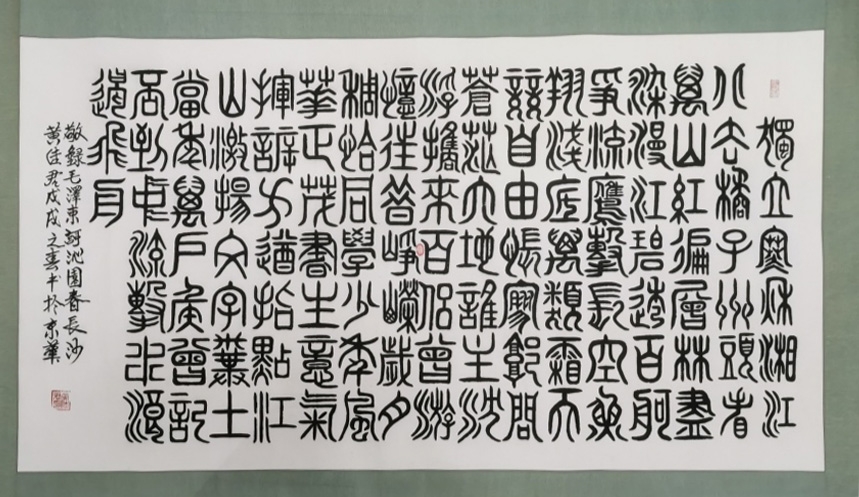 獨立寒秋湘江
北去橘子州頭看
萬山紅徧層林盡
染漫江碧透百舸
爭流鷹擊長空魚
翔淺底萬類霜天
競自由悵寥廓問
蒼茫大地誰主沈
浮攜來百侶曾游
憶往昔崢嶸歲月
稠恰同學少年風
華正茂書生意氣
揮斥方遒指點江
山激揚文字糞土
當年萬戶侯曾記
否到中流擊水浪
遏飛舟
敬錄毛澤東詞沁園春長沙
黄佳君戊戌之春书於京華